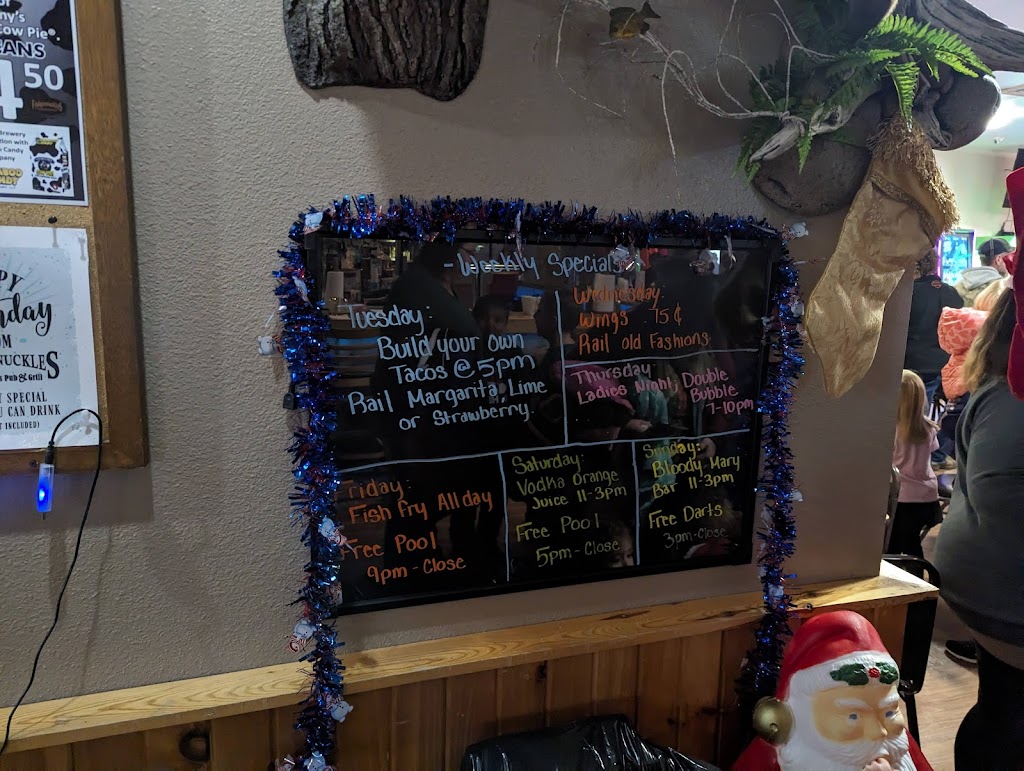 ow Pie®
EANS
4 50
Brewery
tion with
Candy
pany
PPY
hday
OM
NUCKLES
s Pub & Grill
Y SPECIAL
U CAN DRINK
T INCLUDED)
- Weekly Specials
Tuesday:
Build your own
Tacos @ 5pm
Rail Margarita, Lime
or Strawberry.
Wednesday:
Wings 75¢
Rail old Fashions
Thursday
Ladies Night, Double
Bubble
7-10pm
Friday:
Fish Fry All day
Free Pool
9pm - Close
Saturday:
Vodka Orange
Juice 11-3pm
Free Pool
5pm - Close
Sunday:
Bloody Mary
Bar 11-3pm
Free Darts
3pm-Close